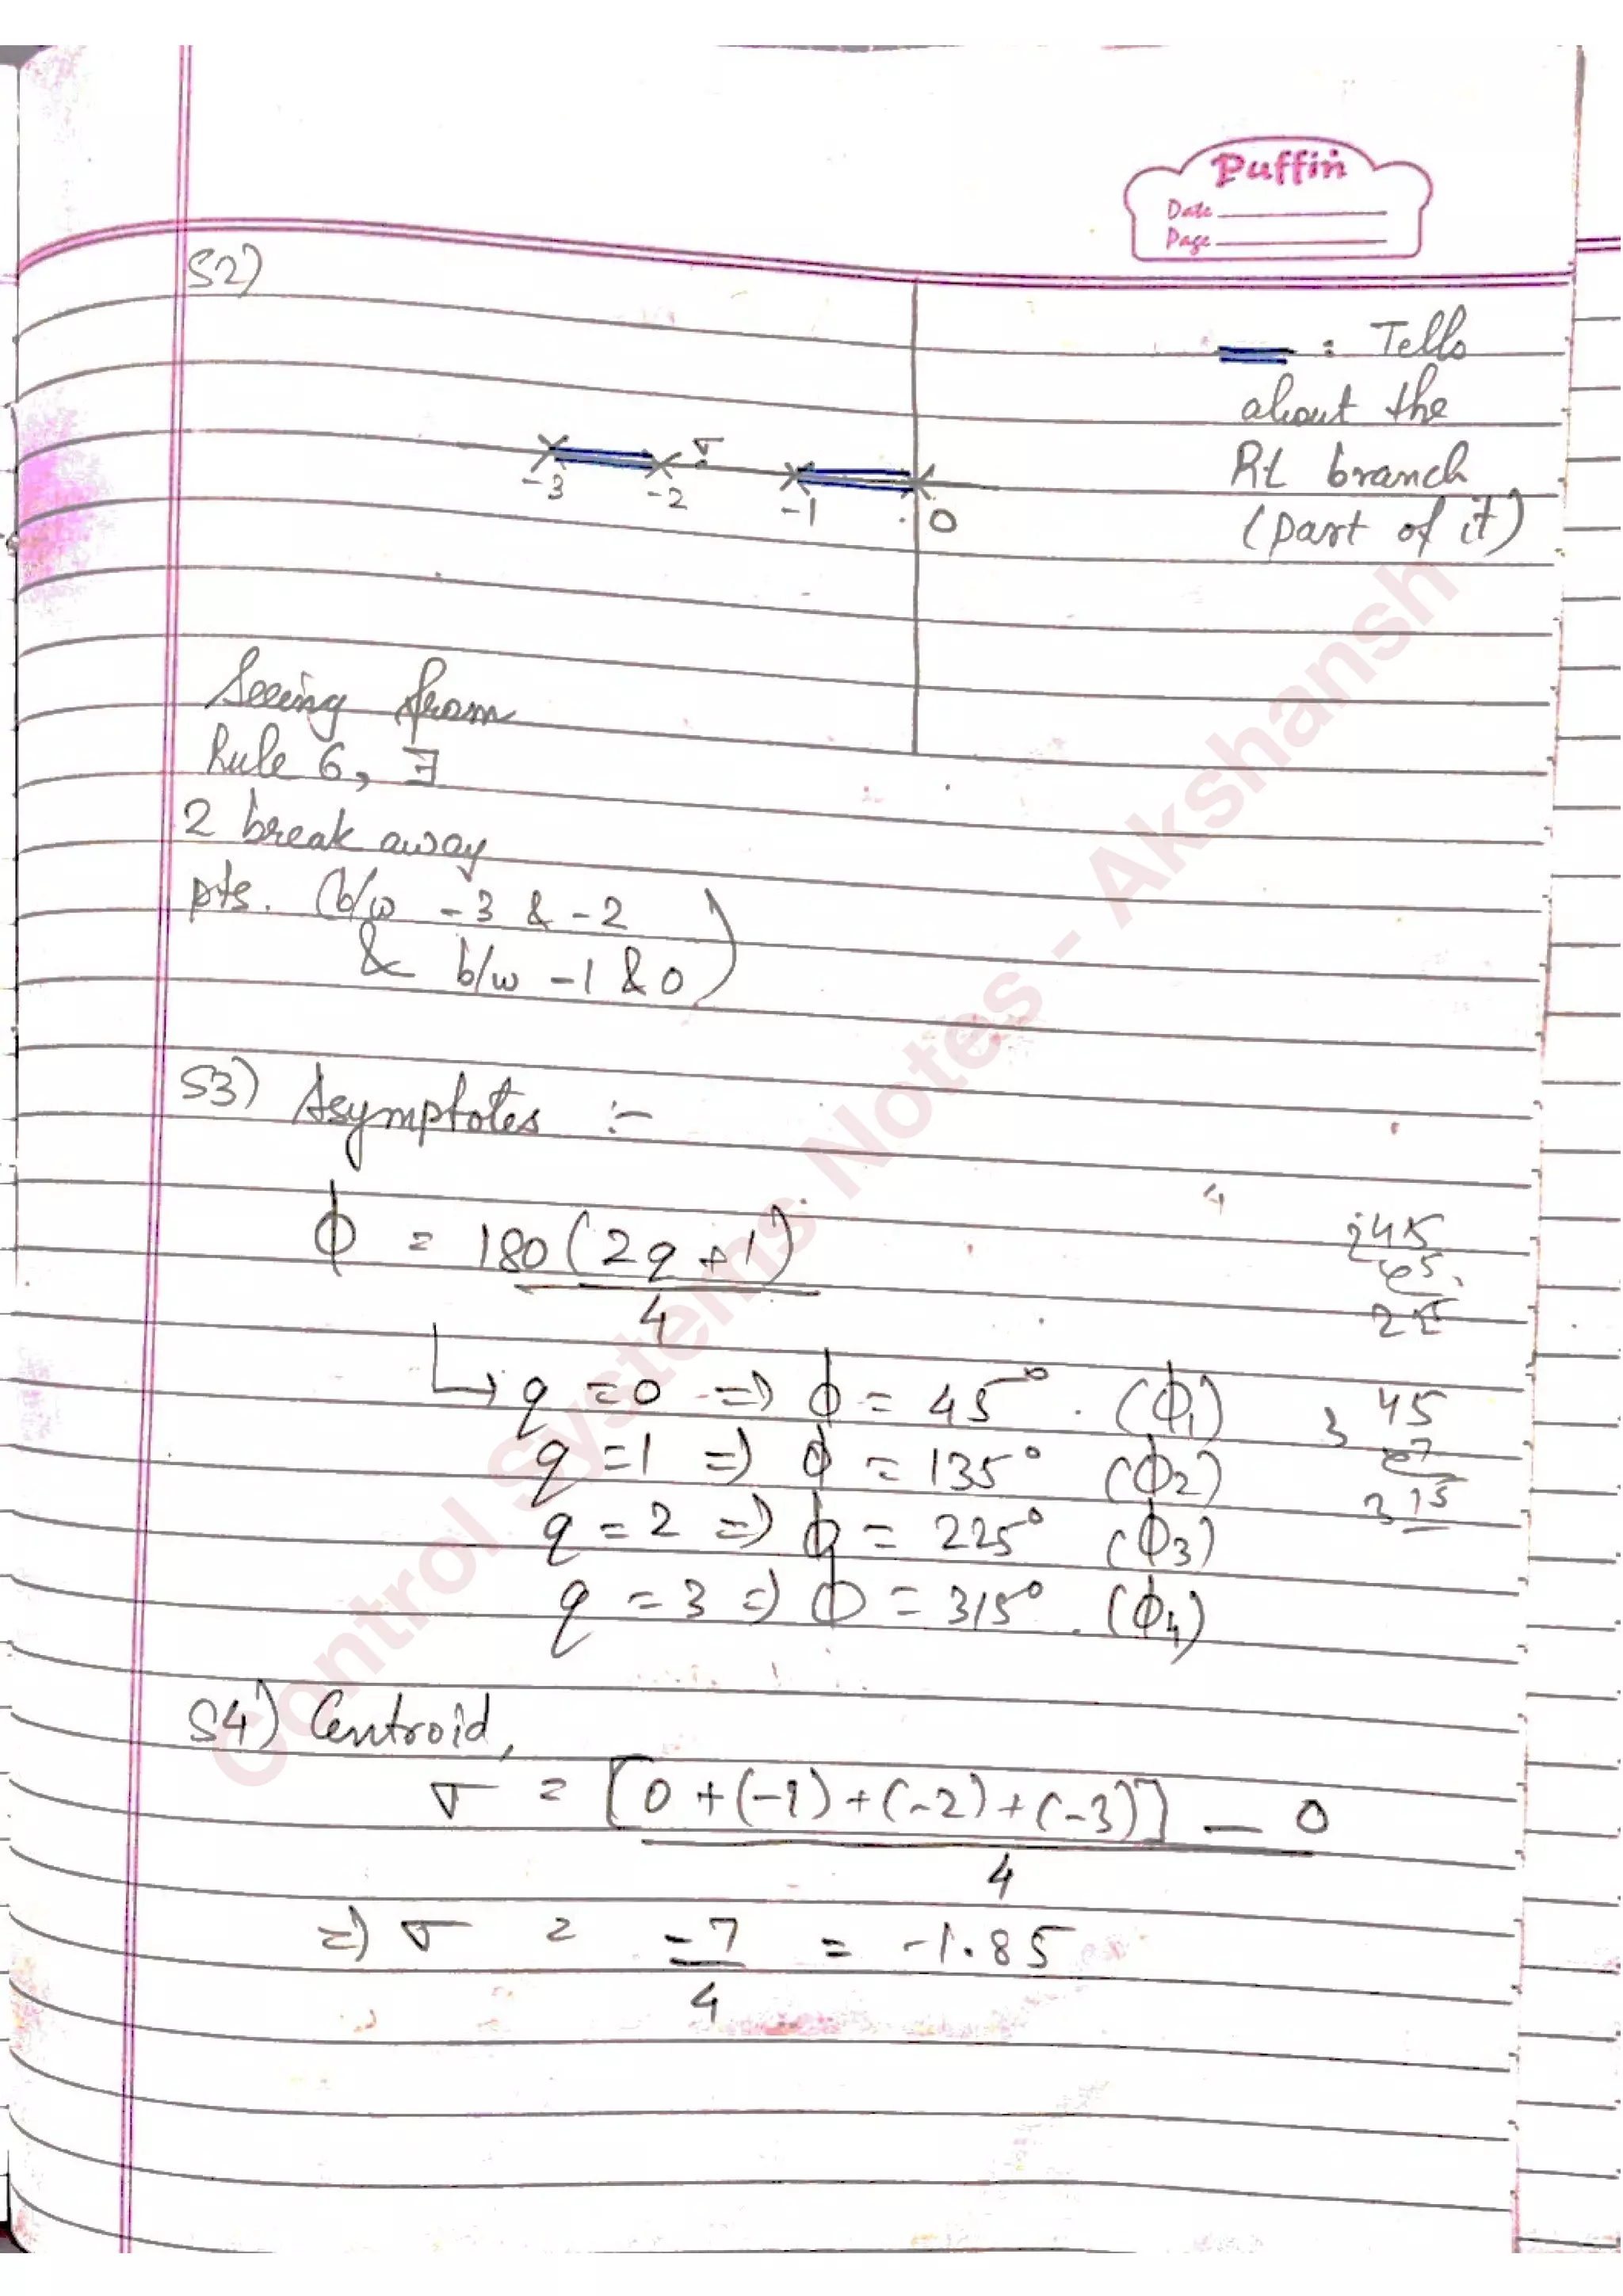 Puffin
Date
Page
S2)
: Tells
about the
RL branch
(part of it)
σ
-3 -2 -1 0
Seeing from
Rule 6, ∃
2 break away
pts. (b/w -3 & -2
& b/w -1 & 0)
S3) Asymptotes :-
ϕ = 180(2q+1)
4
↳ q = 0 => ϕ = 45° . (ϕ1)
q = 1 => ϕ = 135° (ϕ2)
q = 2 => ϕ = 225° (ϕ3)
q = 3 => ϕ = 315° . (ϕ4)
45
315
S4) Centroid,
σ = [0+(-1)+(-2)+(-3)] - 0
4
=) σ = -7 = -1.85
4
Control Systems Notes - Akshansh